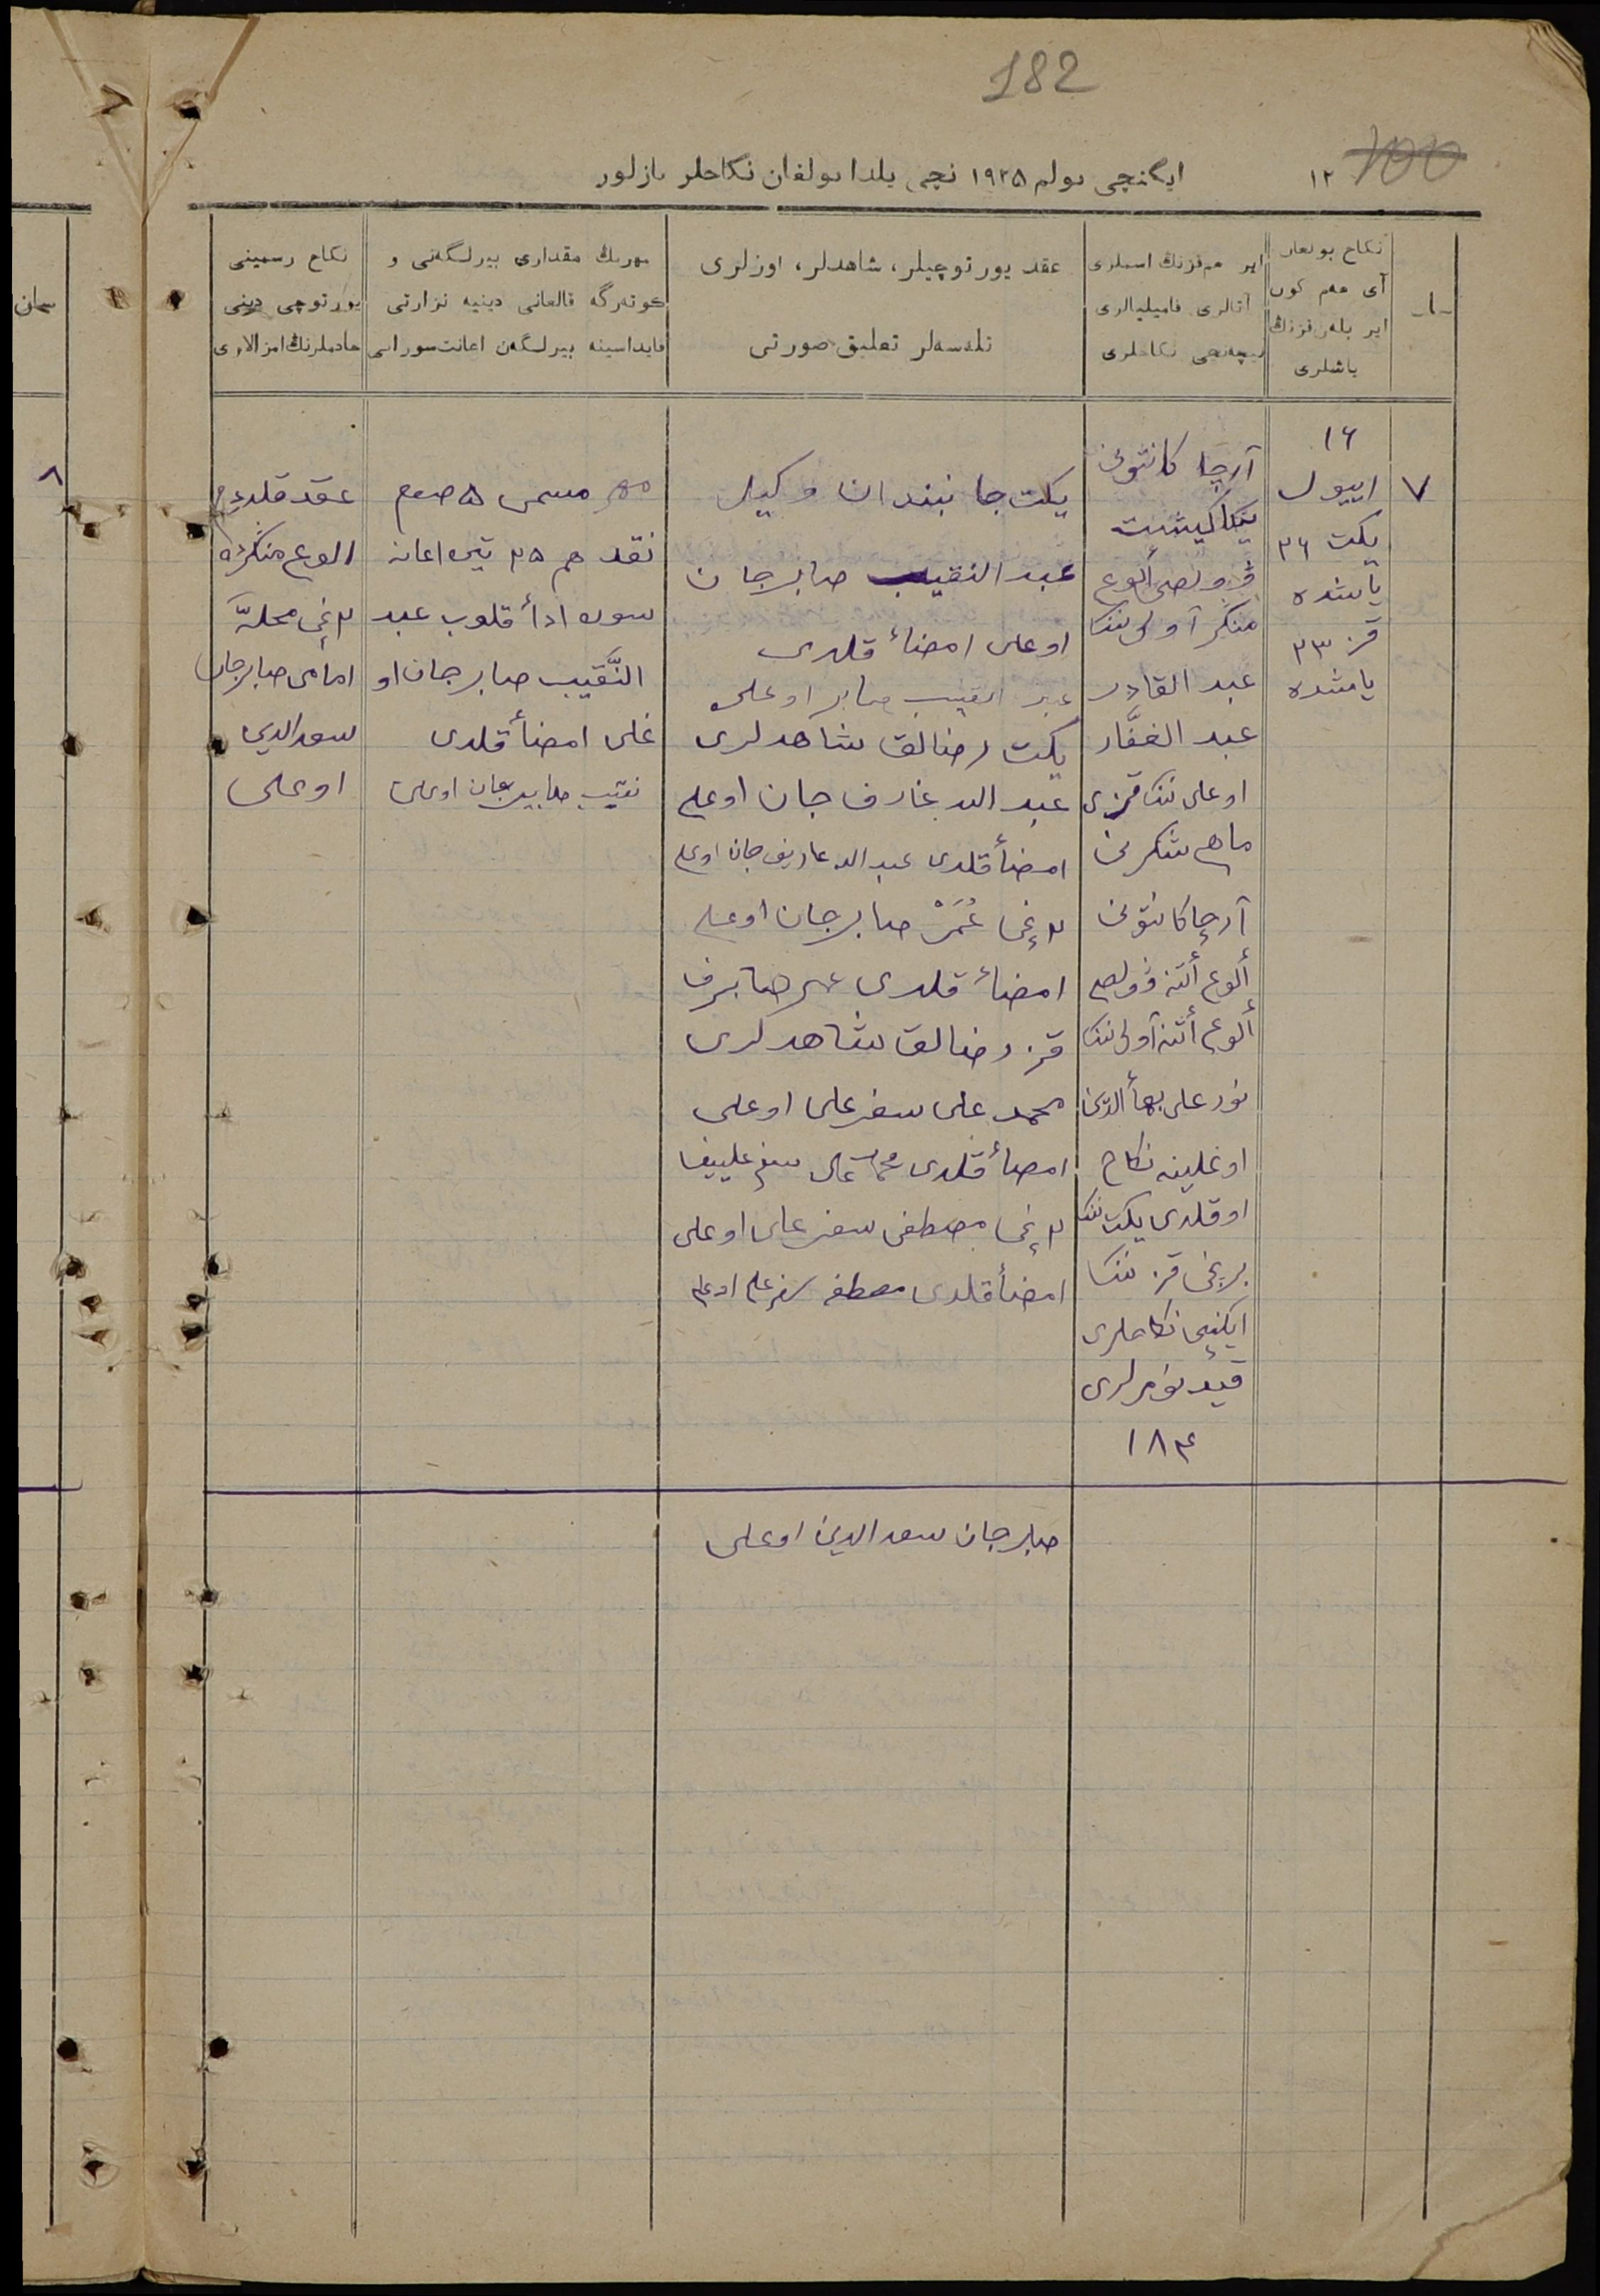 182
100
١٢
ایکنچی بولم ١٩٢٥ نچی یلدا بولغان نکاحلر یازلور
نکاح بولغان
آی هەم کون
ایر بلەن قزنڭ
یاشلری
ایر هم قزنڭ اسملری
آتالری فامیلیالری
نیچەنچی نکاحلری
عقد یورتوچیلر، شاهدلر، اوزلری
تلەسەلر تعلیق صورتی
مهرنڭ مقداری بیرلگەنی و
کوتەرگە قالغانی دینیه نزارتی
فایداسینه بیرلگەن اعانت سوراسی
نکاح رسمینی
یورتوچی دینی
خادملرنڭ امزالاری
٧
١٦
اییول
یکت ٢٦
یاشنده
قز ٢٣
یاشنده
آرچا کانتونی
عبد القادر
عبد الغفّار
اوغلی
آرچا کانتونی
ألوغ أتنه
ألوغ أتنه
نور علی بهأ الدین
اوغلینه نکاح
اوقلدی یکت
برنچی قز
ایکنچی نکاحلری
قید نومرلری
١٨٣
یکت جانبندان وکیل
عبد النقیب صابرجان
اوغلی امضأ قلدی
عبد النقیب صابر اوغلی
یکت رضالق شاهدلری
عبد الله عارف جان اوغلی
امضأ قلدی عبد الله عاریف جان اوغلی
٢ نچی عُمَرْ صابرجان اوغلی
امضأ قلدی عمر صابرف
قز رضالق شاهدلری
محمد علی سفر علی اوغلی
امضأ قلدی محمد علی سفر علییف
٢ نچی مصطفی سفر علی اوغلی
امضأ قلدی مصطفی سفر علی اوغلی
مهر مسمی ٥ صوم
نقد هم ٢٥ تین اعانه
ادأ قلوب عبد
النَّقیب صابرجان او
غلی امضأ قلدی
نقیب صابیرجان اوغلی
عقد قلدم
الوغ منگر
٢ نچی محلّه
امامی صابرجان
سعد الدین
اوغلی
صابرجان سعد الدین اوغلی
٨